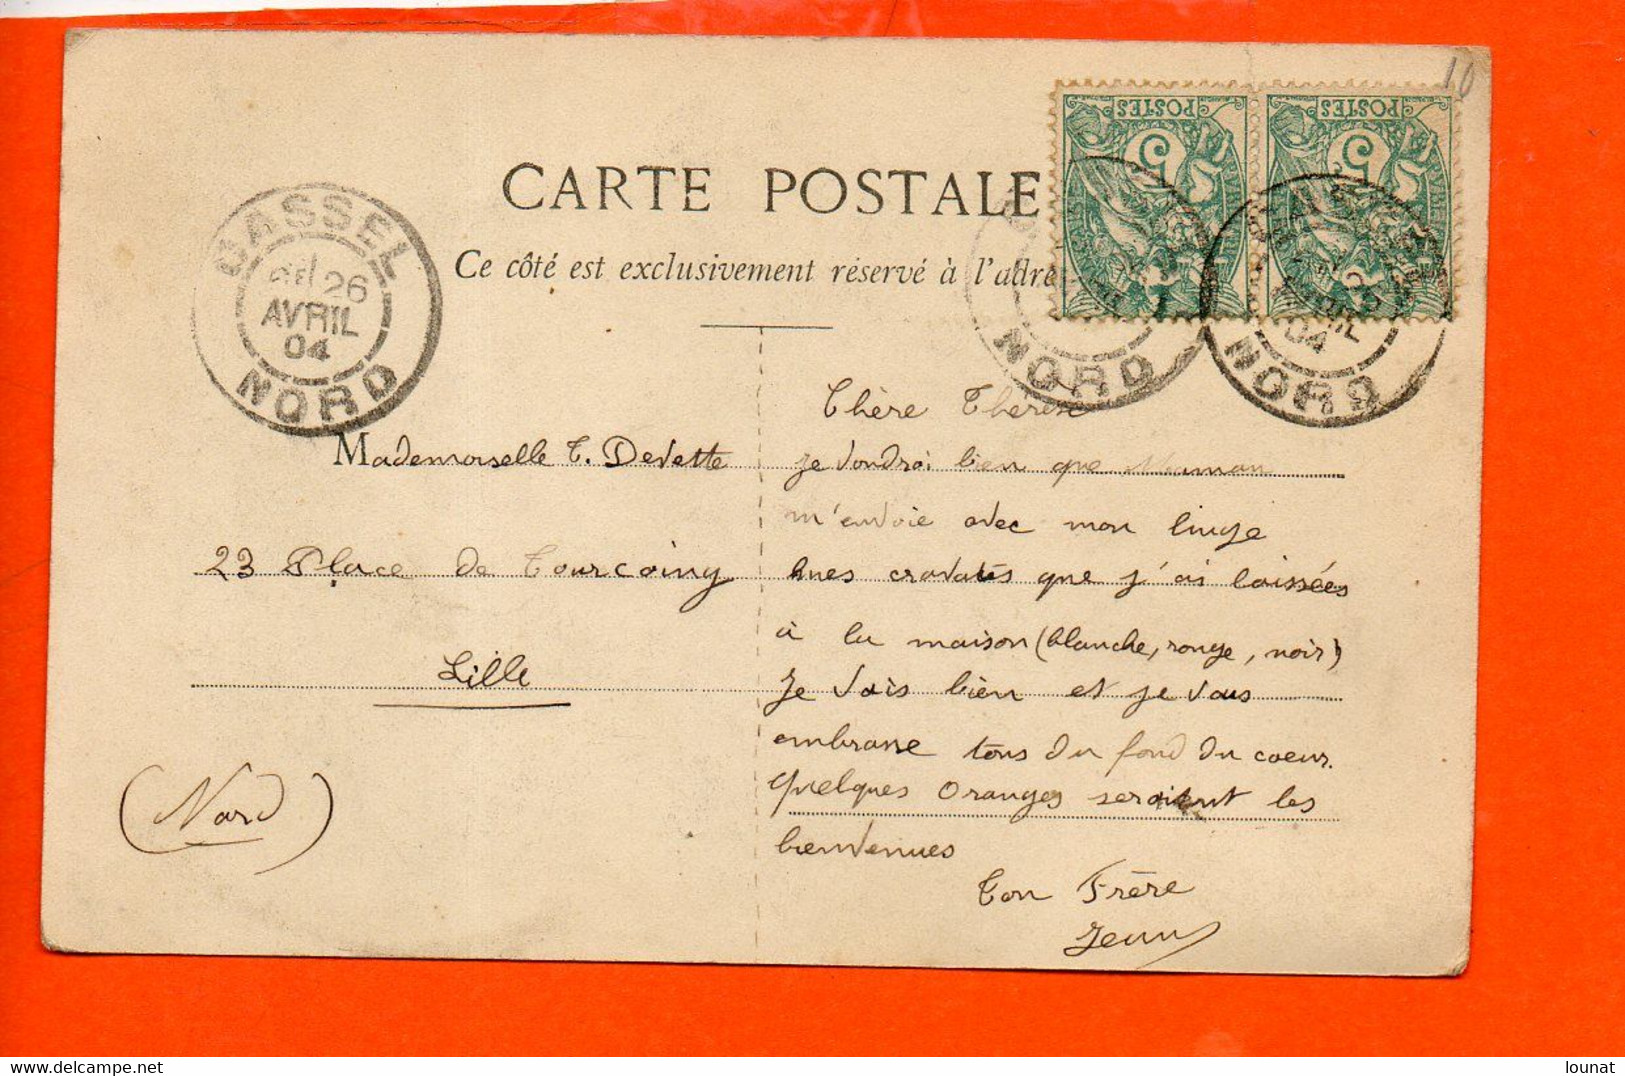 10
POSTES
5
POSTES
5
CARTE POSTALE
Ce côté est exclusivement réservé à l'adre
CASSEL
26
AVRIL
04
NORD
NORD
04
NORD
Chère Thérèse
Mademoiselle T. Devette
je voudrai bien que Maman
m'envoie avec mon linge
23 Place de Tourcoing
mes cravates que j'ai laissées
à la maison (blanche, rouge, noir)
Lille
Je vais bien et je vous
embrasse tous du fond du coeur.
(Nord)
Quelques oranges seraient les
bienvenues
Ton Frère
Jean
lounat